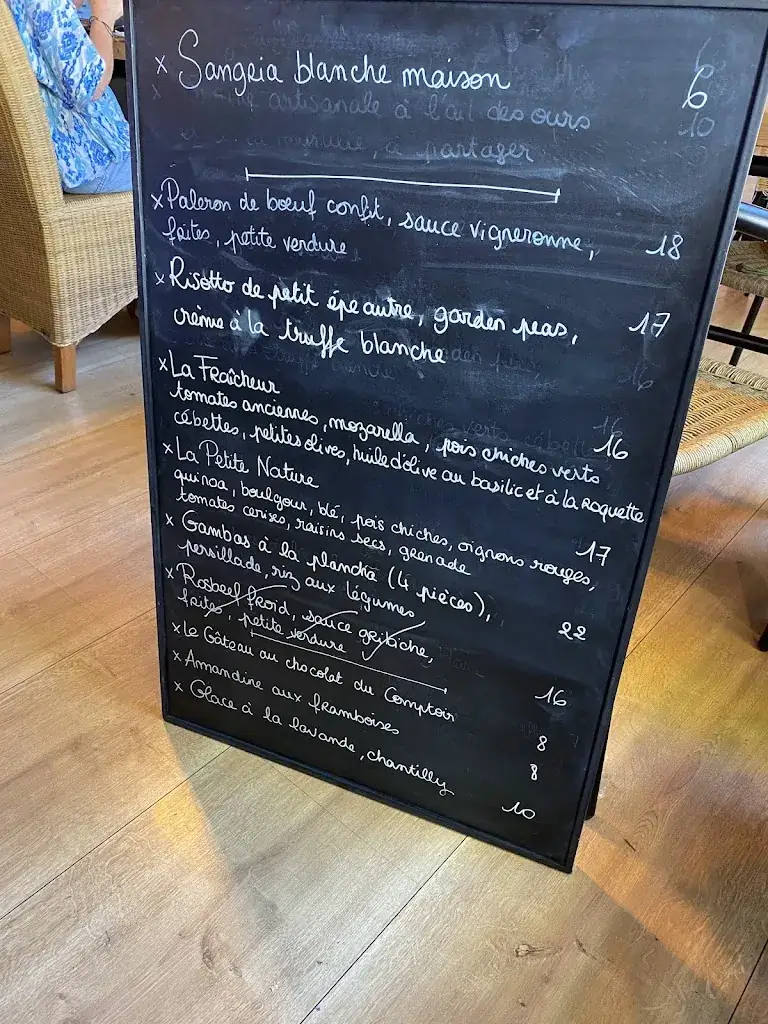 x Sangria blanche maison 6
artisanale à l'ail des ours 10
, à partager
x Paleron de boeuf confit, sauce vigneronne, 18
frites, petite verdure
x Risotto de petit épeautre, garden peas, 17
crème à la truffe blanche
x La Fraîcheur
tomates anciennes, mozarella, pois chiches verts 16
cébettes, petites olives, huile d'olive au basilic et à la roquette
x La Petite Nature
quinoa, boulgour, blé, pois chiches, oignons rouges, 17
tomates cerises, raisins secs, grenade
x Gambas à la plancha (4 pièces), 22
persillade, riz aux légumes
x Rosbeef froid, sauce gribiche, 16
frites, petite verdure
x Le Gâteau au chocolat du Comptoir 8
x Amandine aux framboises 8
x Glace à la lavande, chantilly 10